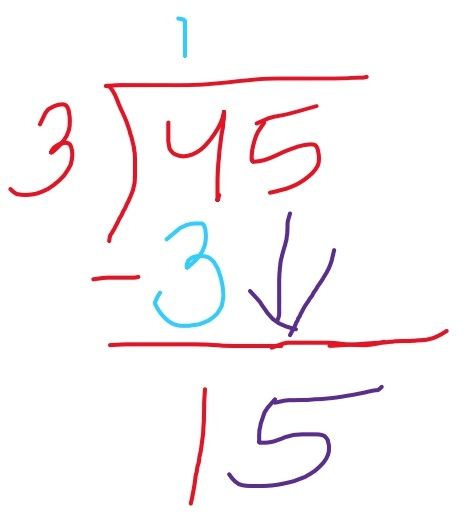 1
3 45
- 3
15